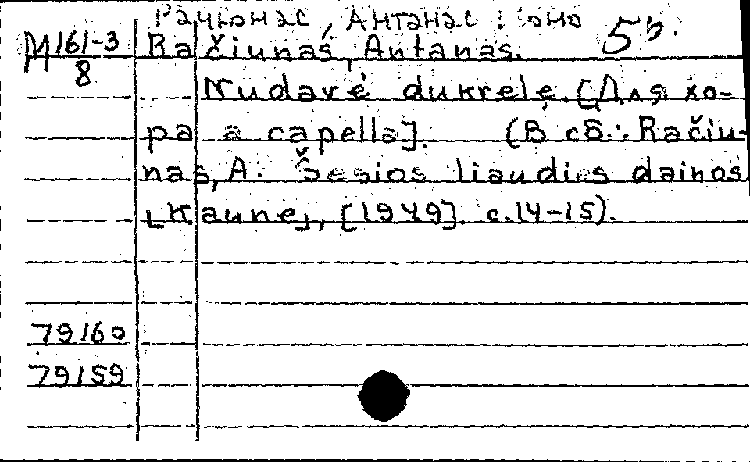 Рачюнас, Антанас Ионо 5б.
М161-3 Račiunas, Antanas.
8 Nudavė dukrelę. [Для хо-
ра a capella]. (В сб.: Račiu-
nas, A. Šešios liaudies dainos
[Kaune], [1949]. с.14-15).
79160
79159